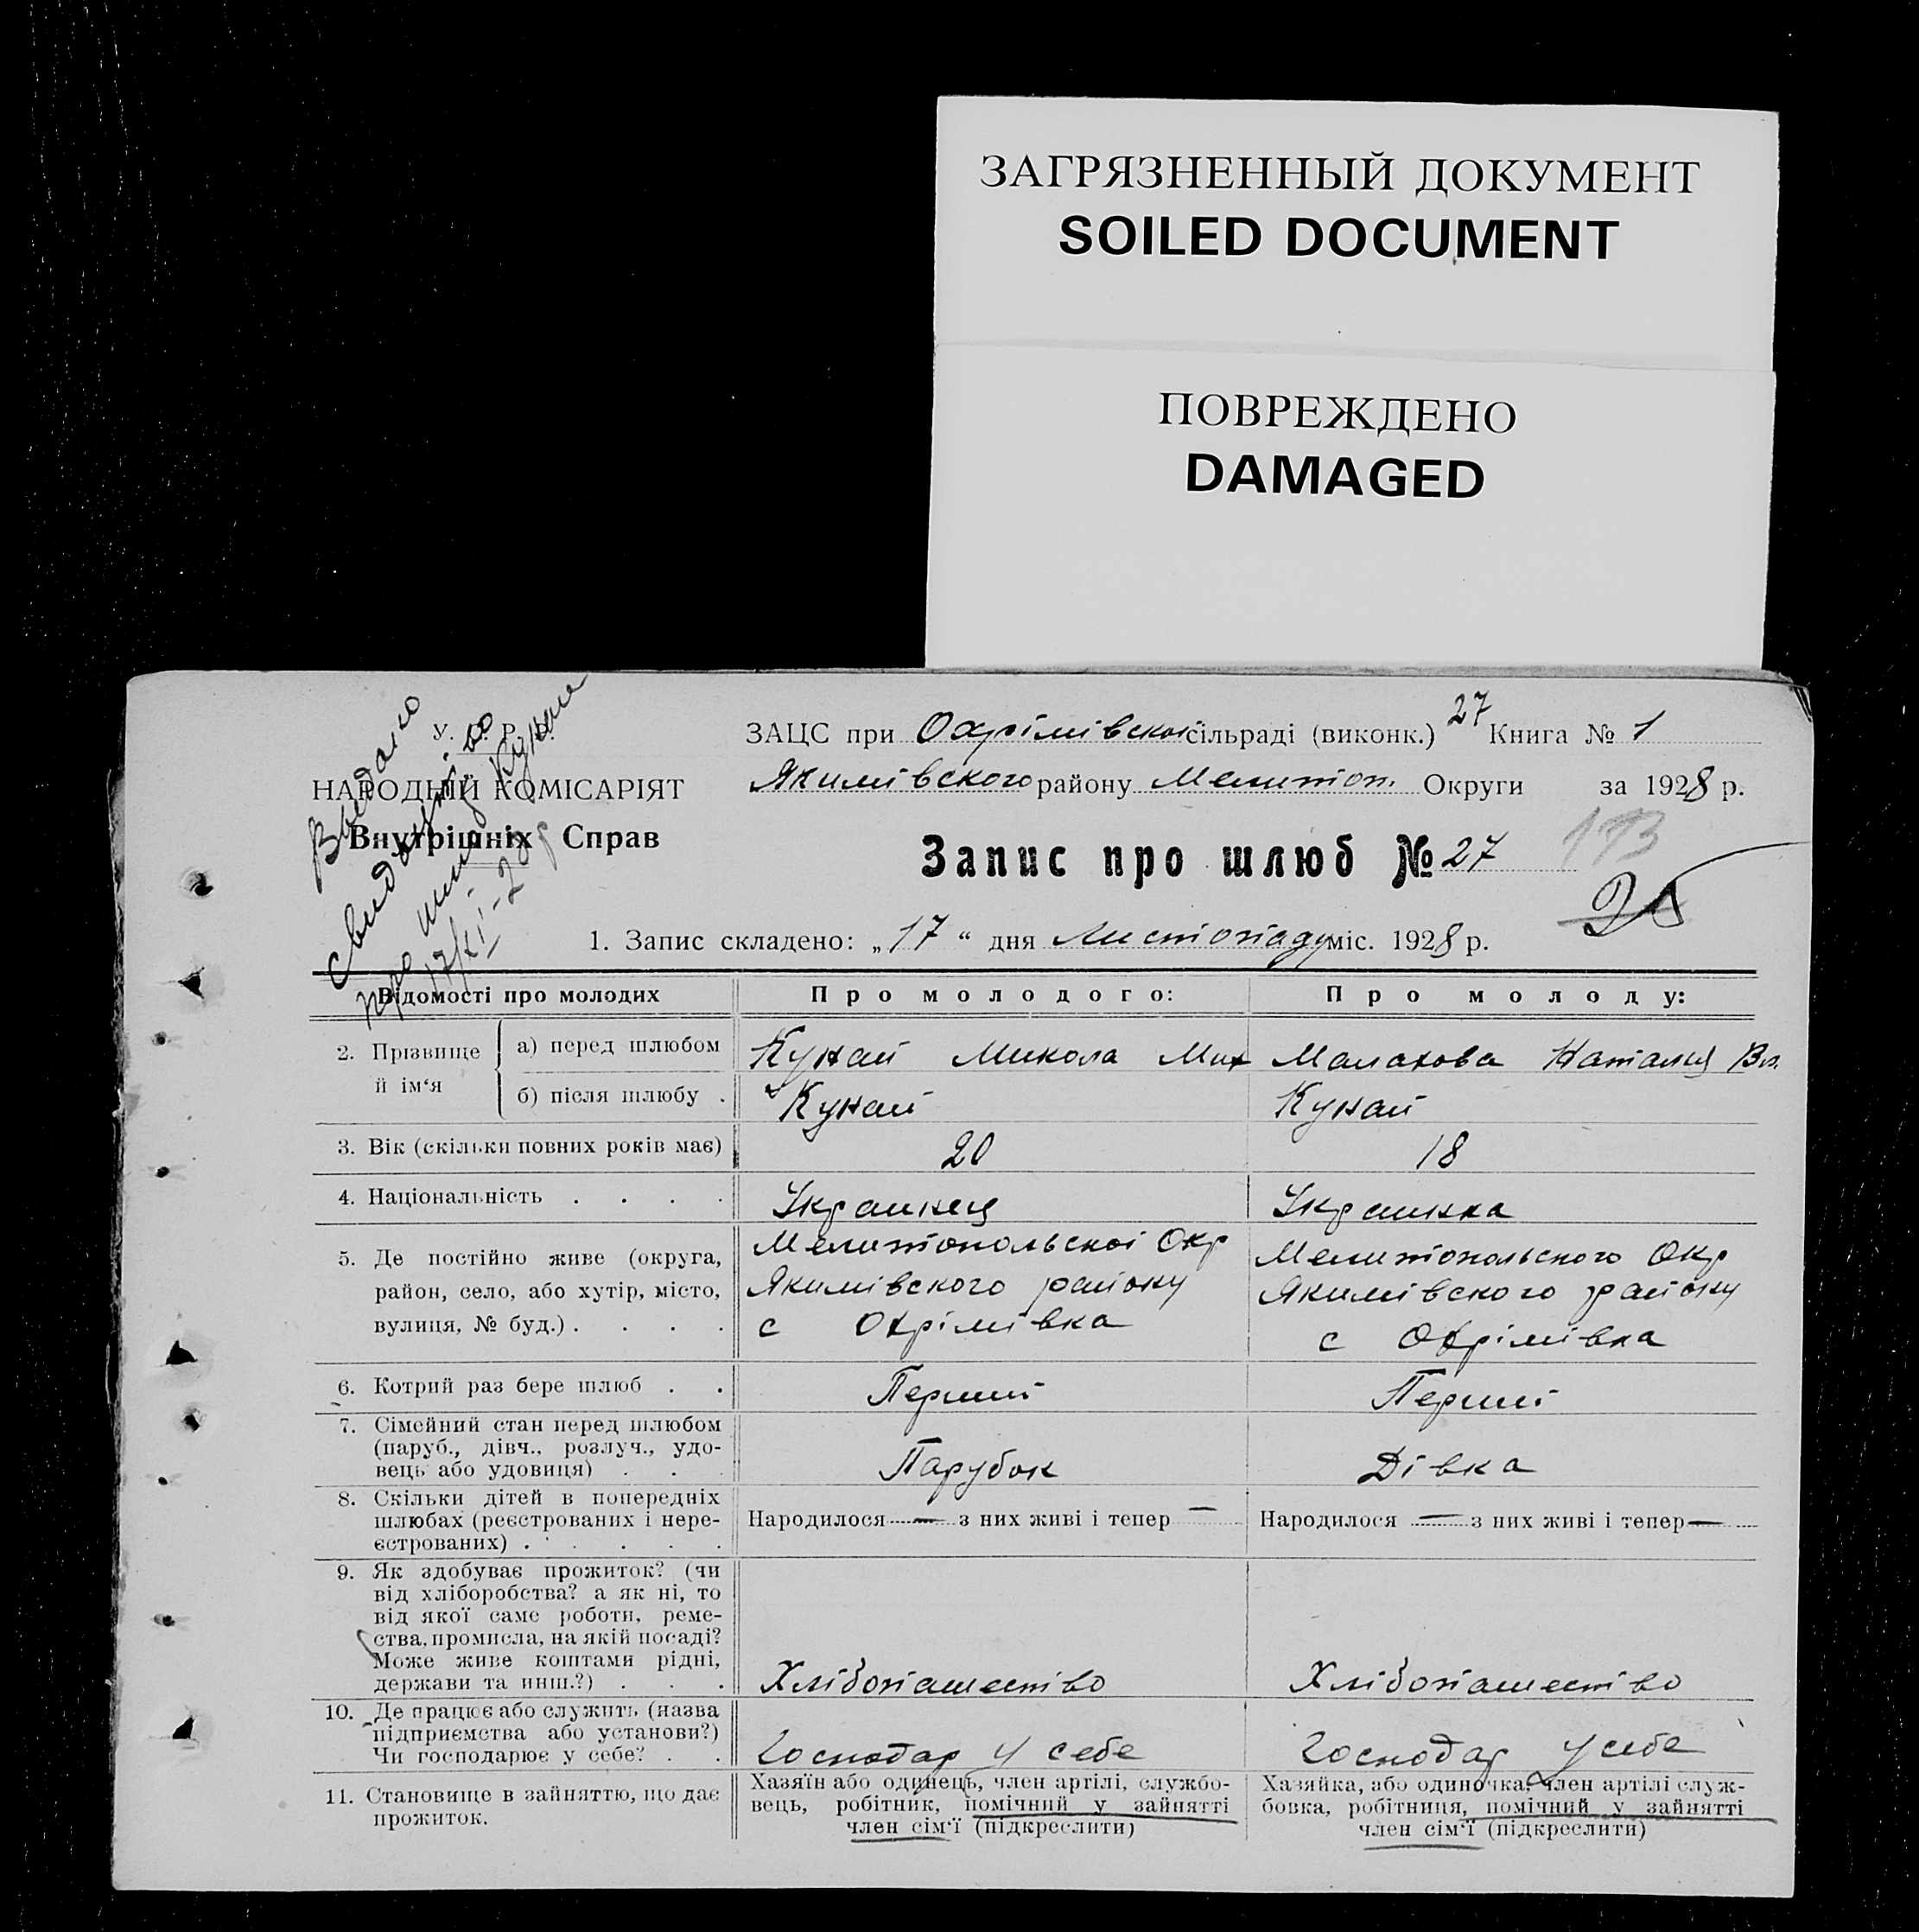 ЗАГРЯЗНЕННЫЙ ДОКУМЕНТ
SOILED DOCUMENT
ПОВРЕЖДЕНО
DAMAGED
Видано
свидоцтво
про шлюб Кунаі
17/XI-28р
У. С. Р. Р.
НАРОДНІЙ КОМІСАРІЯТ
Внутрішніх Справ
ЗАЦС при Охрімівській сільраді (виконк.) 27 Книга № 1
Якимівського району Мелитоп. Округи за 1928 р.
Запис про шлюб № 27
193
1. Запис складено: „17“ дня Листопаду міс. 1928 р.
Відомості про молодих
Про молодого:
Про молоду:
2. Прізвище й ім‘я
а) перед шлюбом
Кунай Микола Мих
Малахова Наталия Вл.
б) після шлюбу .
Кунай
Кунай
3. Вік (скільки повних років має)
20
18
4. Національність . . . .
Украинец
Украинка
5. Де постійно живе (округа,
район, село, або хутір, місто,
вулиця, № буд.) . . . .
Мелитопольскоі Окр
Якимівского району
с Охрімівка
Мелитопольского Окр
Якимівского району
с Охрімівка
6. Котрий раз бере шлюб . .
Перший
Перший
7. Сімейний стан перед шлюбом
(паруб., дівч., розлуч., удо-
вець або удовиця) . .
Парубок
Дівка
8. Скільки дітей в попередніх
шлюбах (реєстрованих і нере-
єстрованих) . . . . .
Народилося — з них живі і тепер —
Народилося — з них живі і тепер —
9. Як здобуває прожиток? (чи
від хліборобства? а як ні, то
від якої саме роботи, реме-
ства, промисла, на якій посаді?
Може живе коштами рідні,
держави та инш.?) . . .
Хлібопашество
Хлібопашество
10. Де працює або служить (назва
підприємства або установи?)
Чи господарює у себе? . .
Господар у себе
Господар у себе
11. Становище в зайняттю, що дає
прожиток.
Хазяїн або одинець, член артілі, службо-
вець, робітник, помічний у зайнятті
член сім‘ї (підкреслити)
Хазяйка, або одиночка, член артілі служ-
бовка, робітниця, помічний у зайнятті
член сім‘ї (підкреслити)